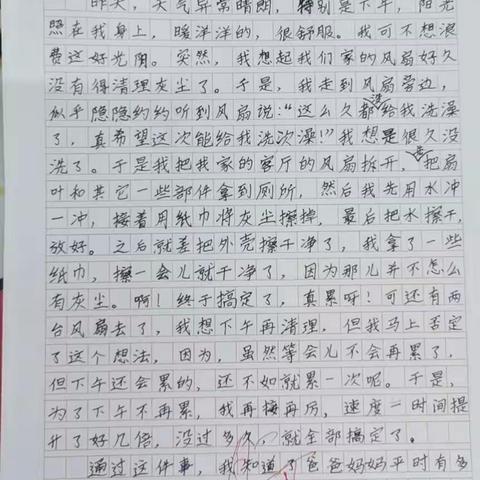 昨天，天气异常晴朗，特别是下午，阳光
照在我身上，暖洋洋的，很舒服。我可不想浪
费这好光阴。突然，我想起我们家的风扇好久
没有得清理灰尘了。于是，我走到风扇旁边，
似乎隐隐约约听到风扇说："这么久都没给我洗澡
了，真希望这次能给我洗次澡！"我想是很久没
洗了。于是我把我家的客厅的风扇拆开，把扇
叶和其它一些部件拿到厕所，然后我先用水冲
一冲，接着用纸巾将灰尘擦掉，最后把水擦干，
放好。之后就差把外壳擦干净了，我拿了一些
纸巾，擦一会儿就干净了，因为那儿并不怎么
有灰尘。啊！终于搞定了，真累呀！可还有两
台风扇去了，我想下午再清理，但我马上否定
了这个想法，因为，虽然等会儿不会再累了，
但下午还会累的，还不如就累一次呢。于是，
为了下午不再累，我再接再厉，速度一时间提
升了好几倍，没过多久，就全部搞定了。
通过这件事，我知道了爸爸妈妈平时有多